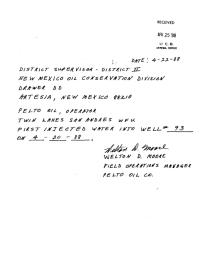 RECEIVED
APR 25 '88
O. C. D.
ARTESIA, OFFICE
DATE: 4-22-88
DISTRICT SUPERVISOR - DISTRICT II
NEW MEXICO OIL CONSERVATION DIVISION
DRAWER DD
ARTESIA, NEW MEXICO 88210
PELTO OIL, OPERATOR
TWIN LAKES SAN ANDRES WFU
FIRST INJECTED WATER INTO WELL # 93
ON 4-20-88.
Welton D. Moore
WELTON D. MOORE
FIELD OPERATIONS MANAGER
PELTO OIL CO.